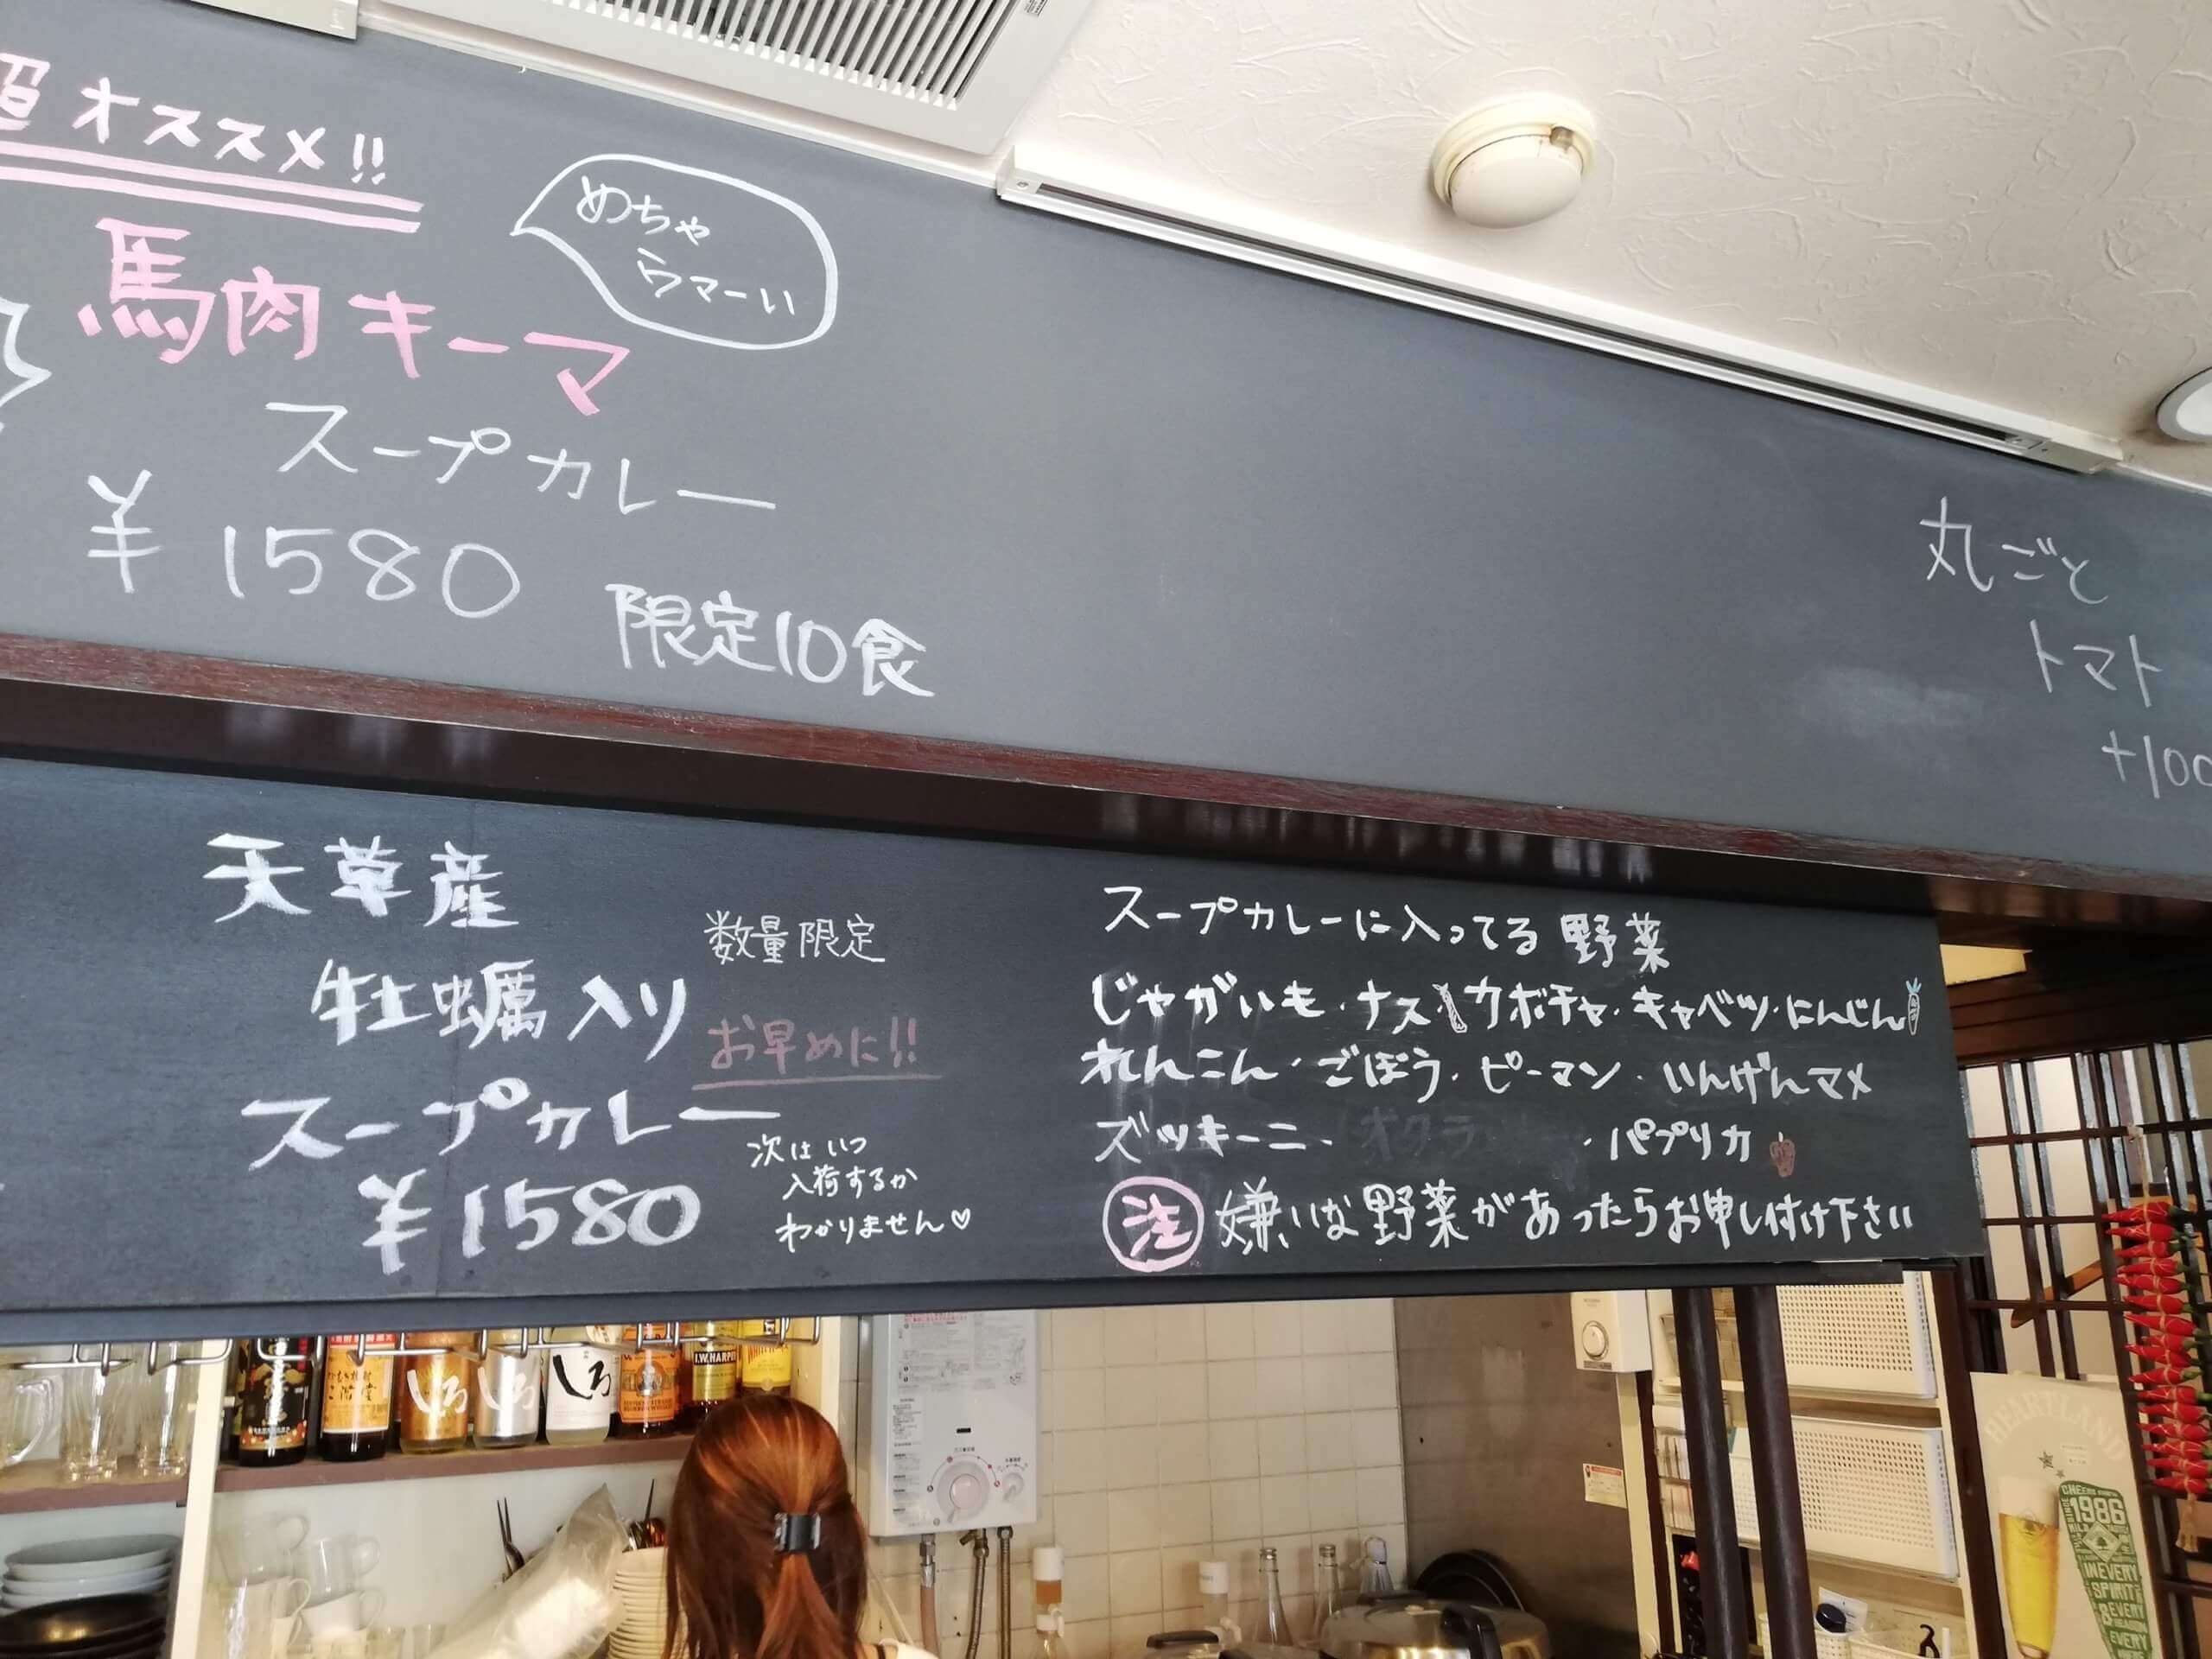 超オススメ!!
めちゃ
ウマーい
馬肉キーマ
スープカレー
¥1580
限定10食
丸ごと
トマト
+100
天草産
数量限定
牡蠣入り
お早めに!!
スープカレー
¥1580
次はいつ
入荷するか
わかりません♡
スープカレーに入ってる野菜
じゃがいも・ナス カボチャ・キャベツ・にんじん
れんこん・ごぼう・ピーマン・いんげんマメ
ズッキーニ・オクラ・パプリカ
注 嫌いな野菜があったらお申し付け下さい
しろ
しろ
しろ
I.W.HARPER
HEARTLAND
CHEERS
1986
IN EVERY
SPIRIT
EVERY
EVERY